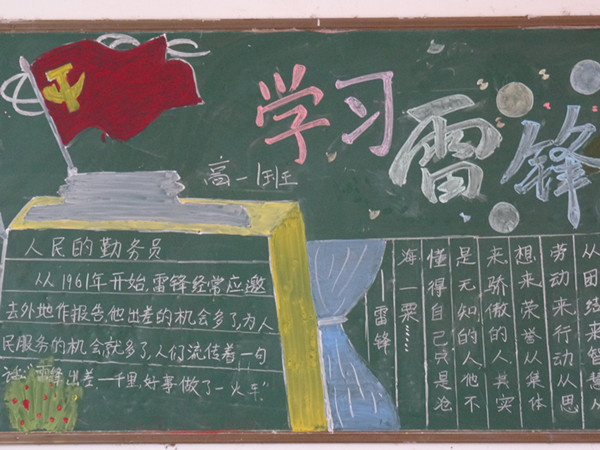 学习雷锋
高一1班
人民的勤务员
从1961年开始,雷锋经常应邀
去外地作报告,他出差的机会多了,为人
民服务的机会就多了,人们流传着一句
话:“雷锋出差一千里,好事做了一火车”
从团结来智慧从
劳动来行动从思
想来荣誉从集体
来骄傲的人其实
是无知的人他不
懂得自己只是沧
海一粟……
—雷锋